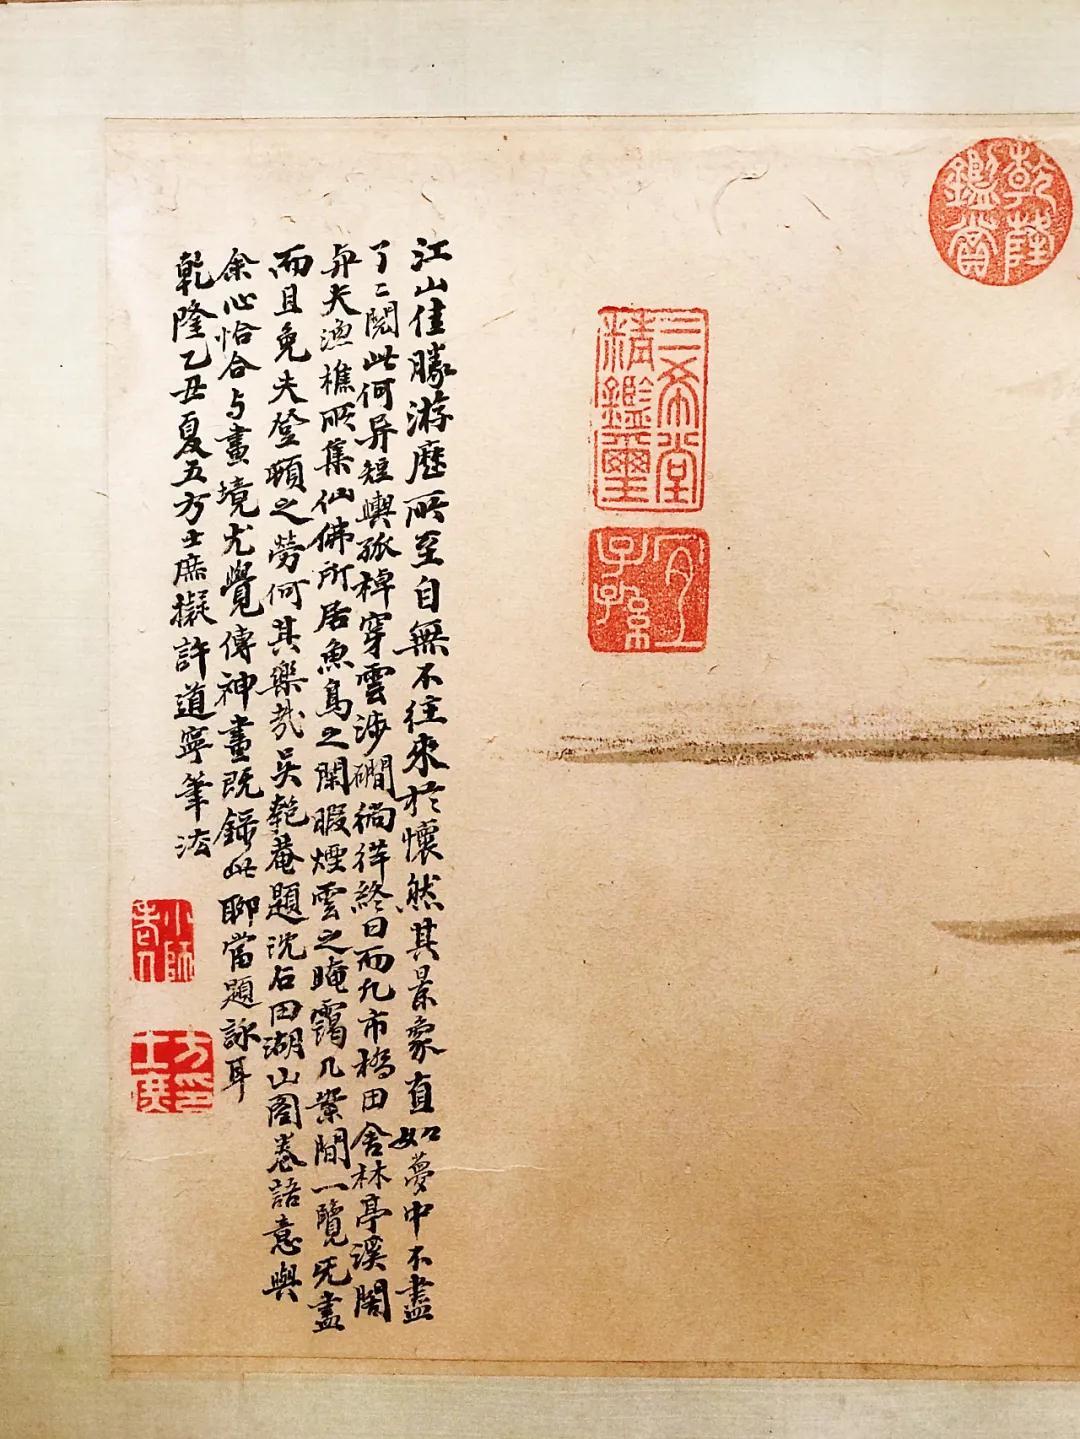 乾隆鑑賞
三希堂
精鑑璽
宜
子孫
江山佳勝游歷所至自無不往來於懷然其景象直如夢中不盡
了〻閱此何异短輿孤棹穿雲涉磵徜徉終日而凡市橋田舍林亭溪閣
弁夫漁樵所集仙佛所居魚鳥之閑暇煙雲之晻靄几案間一覽旡盡
而且免夫登頓之勞何其樂哉吳匏菴題沈石田湖山圖卷語意與
余心恰合与畫境尤覺傳神畫既錄此聊當題詠耳
乾隆乙丑夏五方士庶擬許道寧筆法
小師
老人
方印
士庶